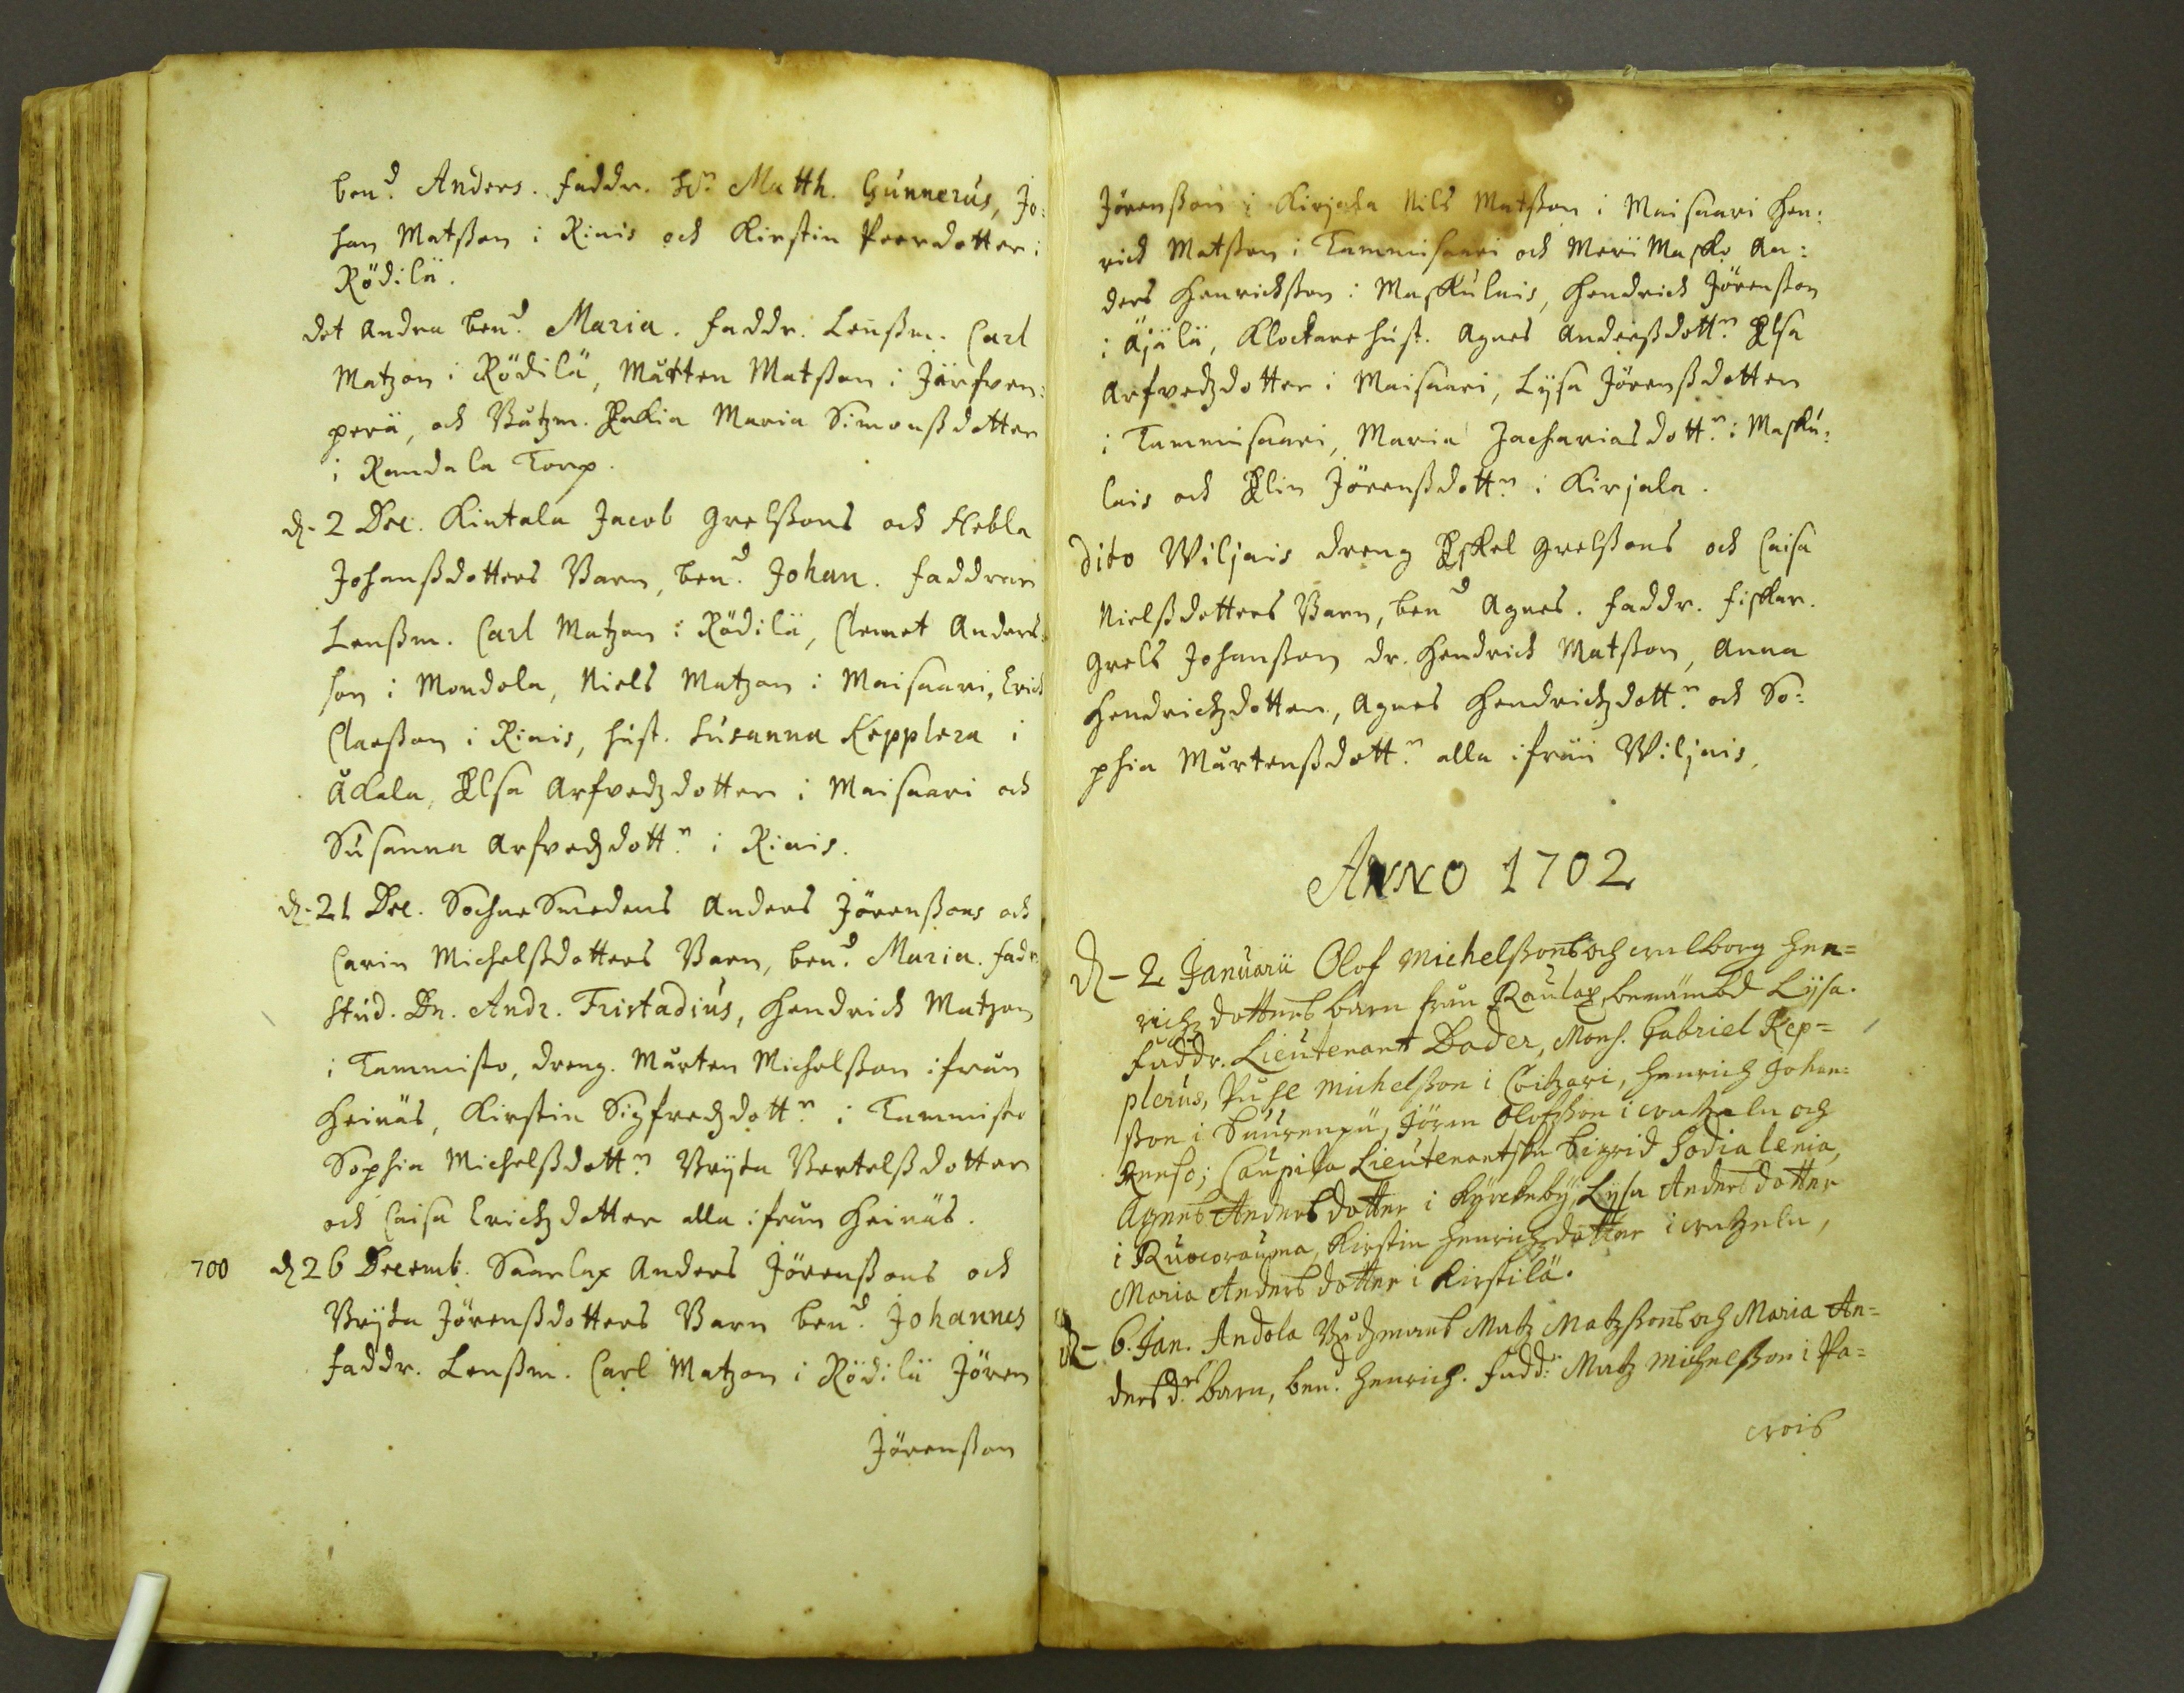 ben:d Anders. faddr. Hr Matth. Gunnerus, Jo:
han Matßon i Riais och Kirstin Peerdotter i
Rödilä.
det andra ben:d Maria. faddr. Lenßm. Carl
Matzon i Rödilä, Mårten Matßon i Järfven:
perä, och Båtzm. Enkia Maria Simonßdotter
i Randala Torp.
d. 2 Dec. Kintala Jacob Grelßons och Hebla
Johanßdotters Barn, ben:d Johan. faddrar
Lenßm. Carl Matzon i Rödilä, Clemet Anders:
son i Mondola, Niels Matzon i Maisaari, Erich
Claeßon i Riais, hust. Susanna Kepplera i
Åkala, Elsa Arfvedzdotter i Maisaari och
Susanna Arfvedzdottr i Riais.
d. 21 Dec. Sochne Smedens Anders Jörenßons och
Carin Michelßdotters Barn, ben:d Maria. fadr
Stud. Dn. Andr. Tristadius, Hendrich Matzon
i Tammisto, dreng. Mårten Michelßon ifrån
Heinäs, Kirstin Sigfredzdottr i Tammisto
Sophia Michelßdottr Brÿta Bertelßdotter
och Caisa Erichzdotter alla ifrån Heinäs.
700 d 26 Decemb. Saarlax Anders Jörenßons och
Brÿta Jörenßdotters Barn ben:d Johannes
faddr. Lenßm. Carl Matzon i Rödilä Jören
Jörenßon
Jörenßon i Kirjala Nils Matßon i Maisaari Hen:
rich Matßon i Tammisaari och Meri Masko An:
ders Henrichßon i Maskulais, Hendrich Jörenßon
i Äjälä, Klockare hust. Agnes Anderßdottr Elsa
Arfvedzdotter i Maisaari, Lÿsa Jörenßdotter
i Tammisaari, Maria Zachariasdottr i Masku:
lais och Elin Jörenßdottr i Kirjala.
Dito Wiljais dreng Eskel Grelßons och Caisa
Nielßdotters Barn, ben:d Agnes. faddr. fiskar.
Grels Johanßon dr. Hendrich Matßon, Anna
Hendrichzdotter, Agnes Hendrichzdottr och So:
phia Mårtenßdottr alla ifrån Wiljais.
ANNO 1702
d - 2 Januarii Olof Michelßons och Walborg Hen=
richz dotters barn från Raulax benämbd Lÿsa.
Faddr. Lieutenant Bader, Mons. Gabriel Kep=
plerus, Michelßon i Coitzari, Henrich Johan=
ßon i Saurenpä, Jören Olofßon i Watzela och
Caupila Lieutenantska Sigrid Sodialenia,
Agnes Andersdotter i Kyrckebÿ, Lÿsa Andersdotter
i Ruocorauma, Kirstin Henrichzdotter i Watzela,
Maria Andersdotter i Kirstilä.
d - 6. Jan. Andola Båtzmans Matz Matzßons och Maria An=
ders d:rs barn, ben:d Henrich. Fadd: Matz Michelßon i Pa=
wois